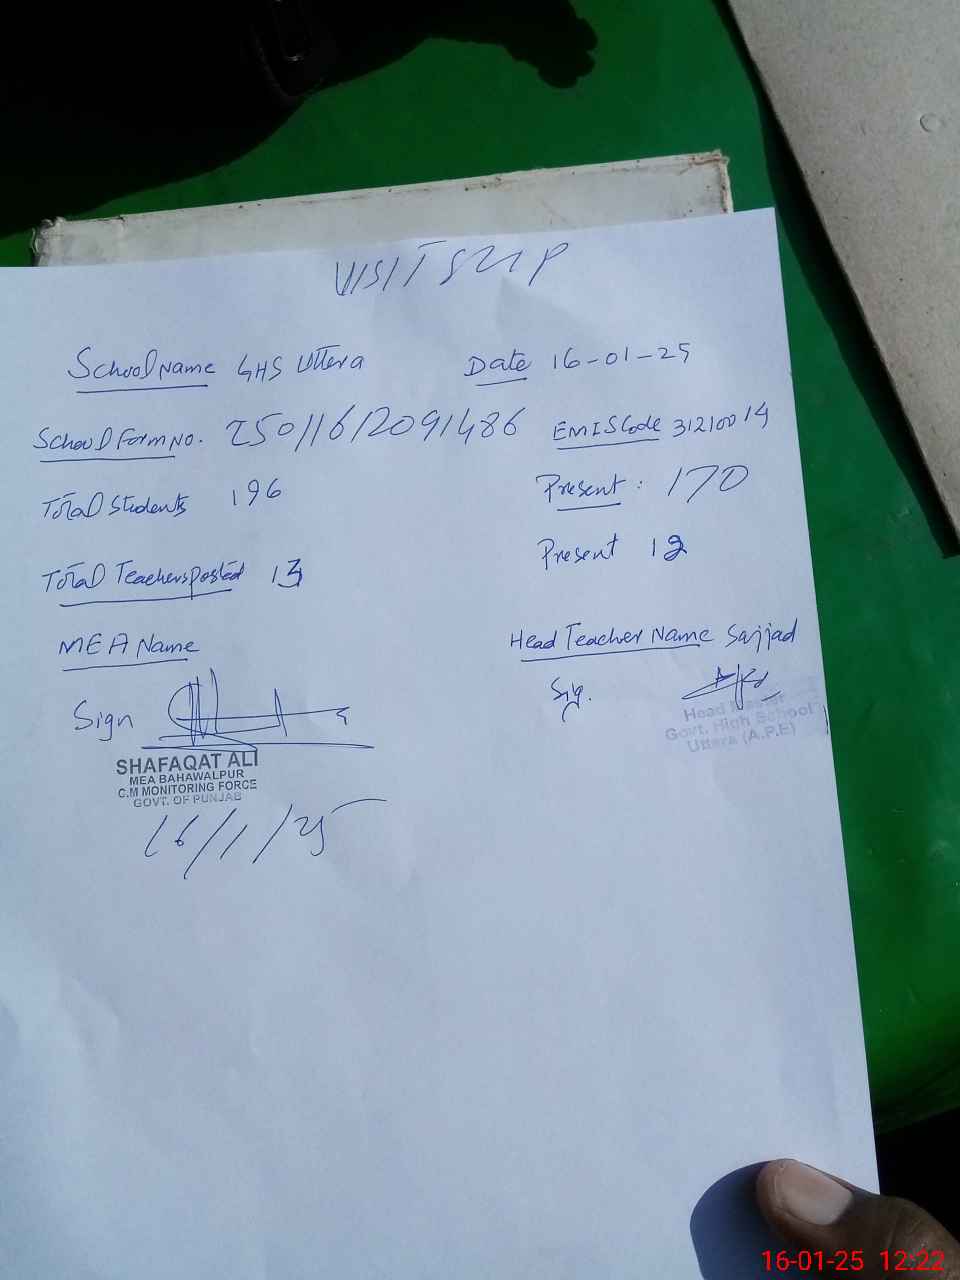 VISIT SLIP
School Name GHS Uttera Date 16-01-25
School Form No. 25011612091486 EMIS Code 31210014
Total Students 196 Present: 170
Total Teachers posted 13 Present 12
MEA Name Head Teacher Name Sajjad
Sign Sig.
SHAFAQAT ALI
MEA BAHAWALPUR
C.M MONITORING FORCE
GOVT. OF PUNJAB
Head Master
Govt. High School
Uttera (A.P.E)
16/1/25
16-01-25 12:22